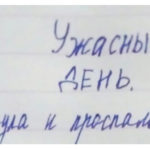 Ужасны
ДЕНЬ.
ула и проспал